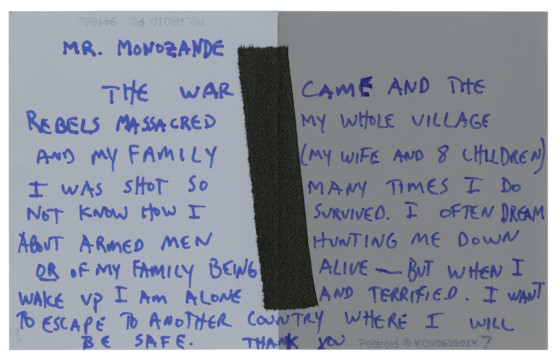 POLAROID PC 94186L
MR. MONOZANDE
THE WAR CAME AND THE
REBELS MASSACRED MY WHOLE VILLAGE
AND MY FAMILY (MY WIFE AND 8 CHILDREN)
I WAS SHOT SO MANY TIMES I DO
NOT KNOW HOW I SURVIVED. I OFTEN DREAM
ABOUT ARMED MEN HUNTING ME DOWN
OR OF MY FAMILY BEING ALIVE — BUT WHEN I
WAKE UP I AM ALONE AND TERRIFIED. I WANT
TO ESCAPE TO ANOTHER COUNTRY WHERE I WILL
BE SAFE. THANK YOU Polaroid 7